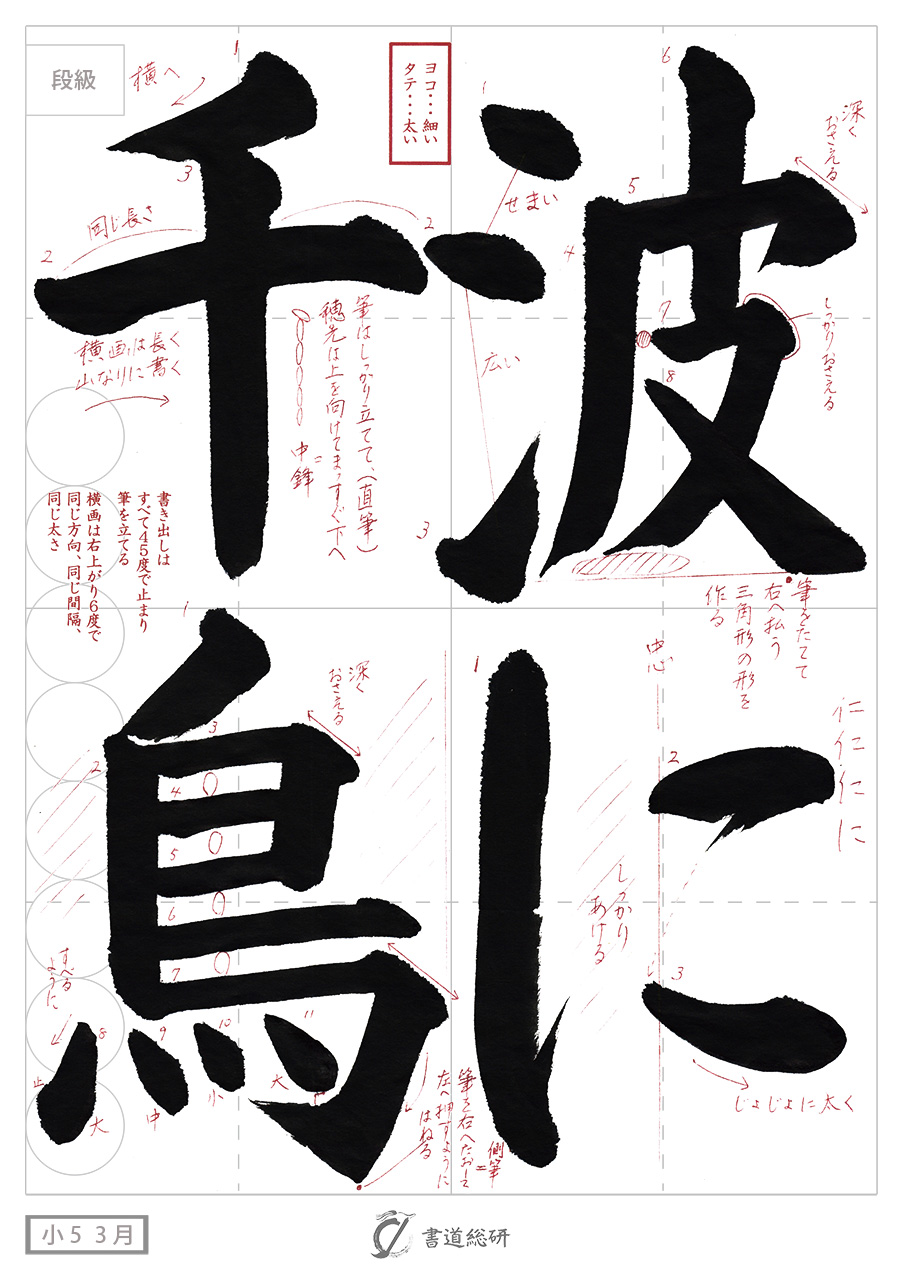 波に
千鳥
段級
ヨコ・・・細い
タテ・・・太い
深く
おさえる
せまい
広い
しっかりおさえる
筆をたてて
右へ払う
三角形の形を
作る
横へ
同じ長さ
横画は長く
山なりに書く
筆はしっかり立てて、(直筆)
穂先は上を向けてまっすぐ下へ
中鋒
書き出しは
すべて45度で止まり
筆を立てる
横画は右上がり6度で
同じ方向、同じ間隔、
同じ太さ
中心
仁仁仁に
しっかり
あける
じょじょに太く
深く
おさえる
すべる
ように
止
大
中
小
大
筆を右へたおして
側筆
左へ押すように
はねる
小5 3月
書道総研